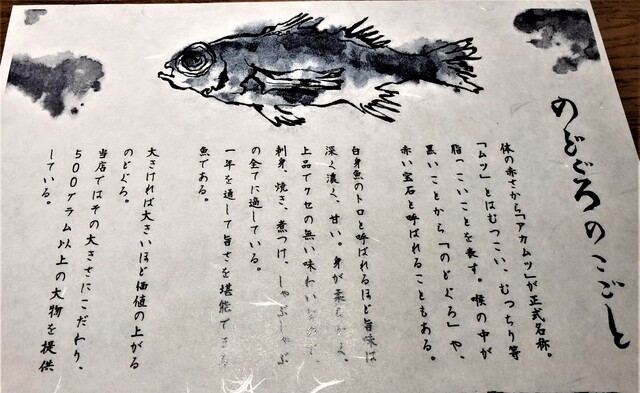 のどぐろのこごと
体の赤さから「アカムツ」が正式名称。
「ムツ」とはむつこい、むっちり等
脂っこいことを表す。喉の中が
黒いことから「のどぐろ」や、
赤い宝石と呼ばれることもある。
白身魚のトロと呼ばれるほど旨味は
深く濃く、甘い。身が柔らかく、
上品でクセの無い味わいで
刺身、焼き、煮つけ、しゃぶしゃぶ
の全てに適している。
一年を通して旨さを堪能できる
魚である。
大きければ大きいほど価値の上がる
のどぐろ。
当店ではその大きさにこだわり、
500グラム以上の大物を提供
している。